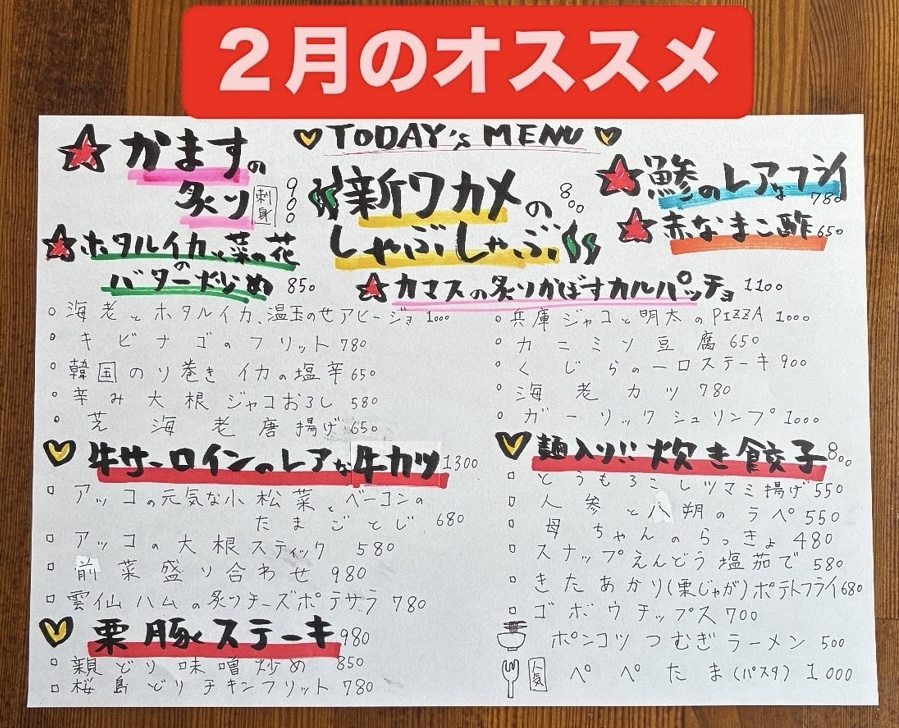 2月のオススメ
TODAY's MENU
★かますの
炙り 刺身 900
新ワカメの
しゃぶしゃぶ 800
★鯵のレアなフライ 780
★赤なまこ酢 650
★ホタルイカと菜の花の
バター炒め 850
★カマスの炙りかぼすカルパッチョ 1100
○海老とホタルイカ、温玉のせアヒージョ 1000
○キビナゴのフリット 780
○韓国のり巻き イカの塩辛 650
○辛み大根ジャコおろし 580
○芝海老唐揚げ 650
○兵庫ジャコと明太のPIZZA 1000
○カニミソ豆腐 650
○くじらの一口ステーキ 900
○海老カツ 780
○ガーリックシュリンプ 1000
牛サーロインのレアな牛カツ 1300
□アッコの元気な小松菜とベーコンの
たまごとじ 680
□アッコの大根スティック 580
□前菜盛り合わせ 980
□雲仙ハムの炙りチーズポテサラ 780
栗豚ステーキ 980
□親どり味噌炒め 850
□桜島どりチキンフリット 780
麺入り!! 炊き餃子 800
□とうもろこしツマミ揚げ 550
□人参と八朔のラペ 550
□母ちゃんのらっきょ 480
□スナップえんどう塩茹で 580
□きたあかり(栗じゃが)ポテトフライ 680
□ゴボウチップス 700
ポンコツつむぎラーメン 500
人気 ペペたま(パスタ) 1000